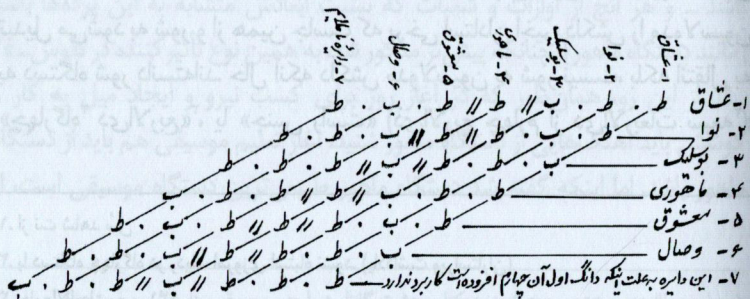 ۱- عشاق
۲- نوا
۳- بوسلیک
۴- ماهوری
۵ معشوق
۶ وصال
۷ دایره ناملایم
۱- عشاق ط . ط . ب . ط // ط // ب . ط
۲- نوا ط . ب . ط . ط // ب // ط . ط
۳- بوسلیک ب . ط . ط . ب // ط // ط . ط
۴- ماهوری ط . ط . ب . ط // ط // ط . ب
۵- معشوق ط . ب . ط . ط // ط // ب . ط
۶- وصال ب . ط . ط . ط // ب // ط . ط
۷- این دایره بعلت اینکه دانگ اول آن چهارم افزوده است کاربرد ندارد ط . ط . ب . ط // ط // ط . ب